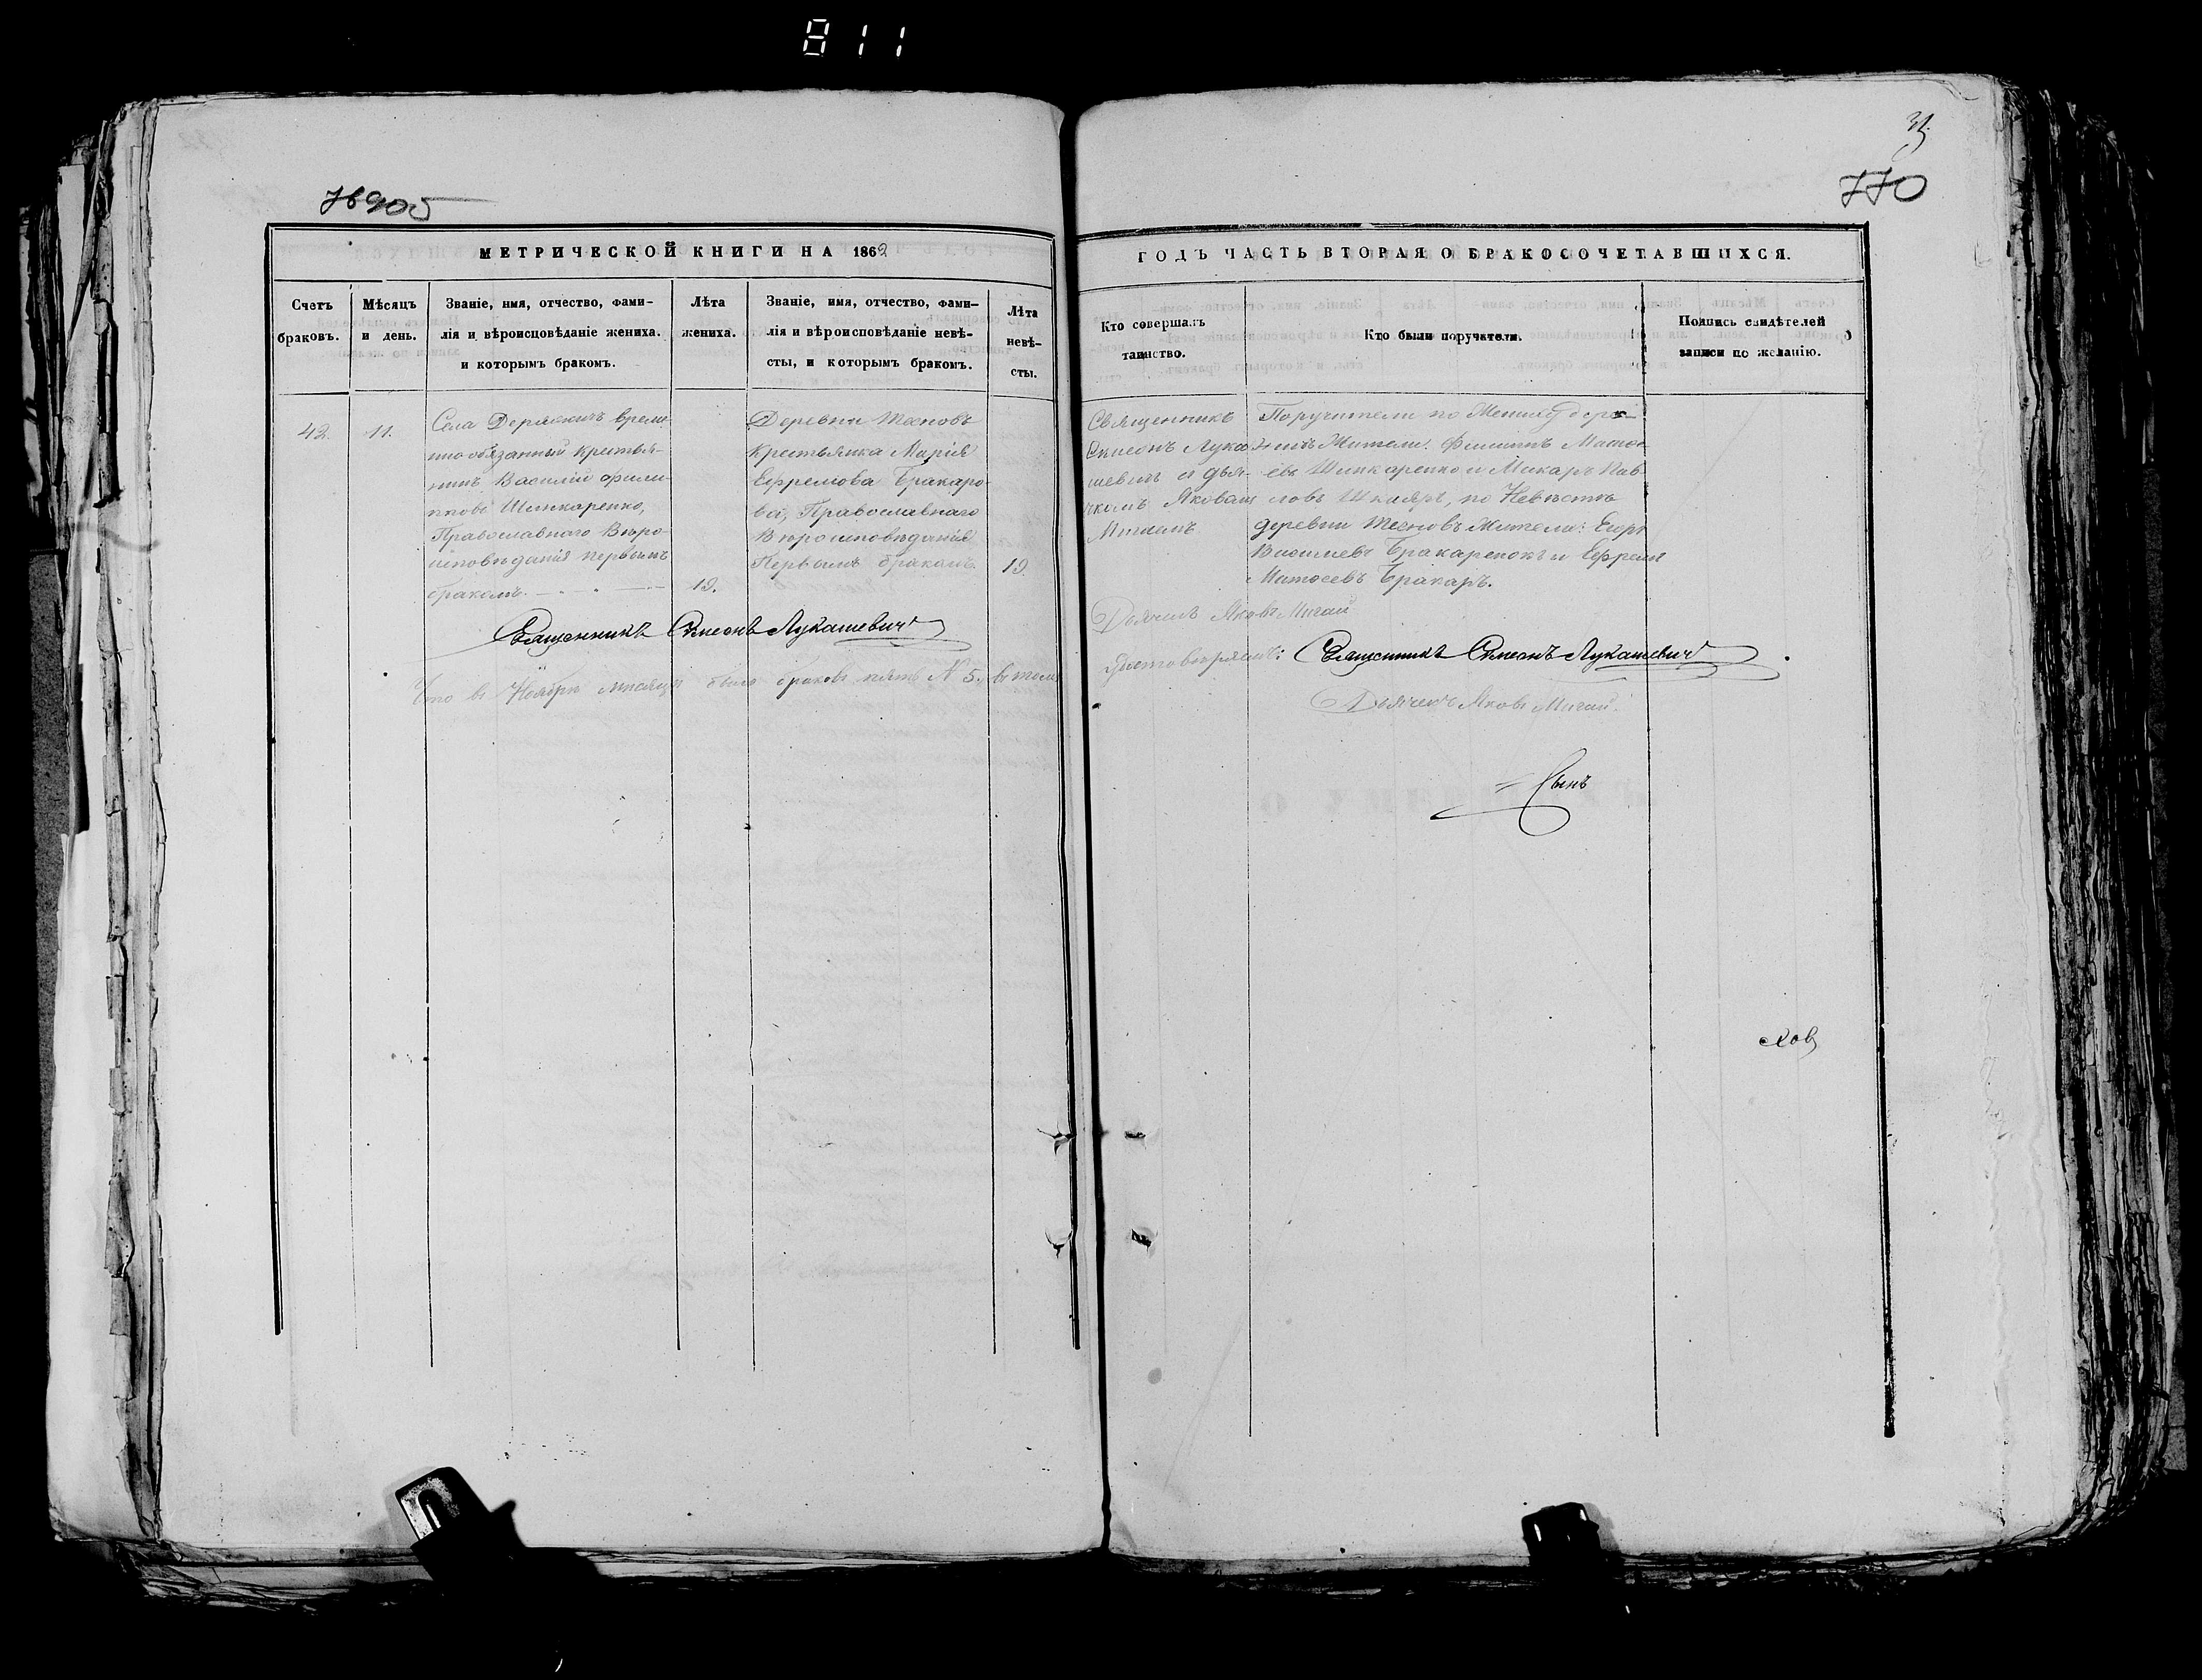 811
31.
76905
770
МЕТРИЧЕСКОЙ КНИГИ НА 1862
ГОДЪ ЧАСТЬ ВТОРАЯ О БРАКОСОЧЕТАВШИХСЯ.
Счетъ
браковъ.
Мѣсяцъ
и день.
Званіе, имя, отчество, фами-
лія и вѣроисповѣданіе жениха.
и которымъ бракомъ.
Лѣта
жениха.
Званіе, имя, отчество, фами-
лія и вѣроисповѣданіе невѣ-
сты, и которымъ бракомъ.
Лѣта
невѣ-
сты.
Кто совершалъ
таинство.
Кто были поручатели.
Подпись свидѣтелей
записи по желанію.
42.
11.
Села Деражичъ време-
нно обязанный крестья-
нинъ Василій Фили-
пповъ Шинкаренко,
Православнаго Вѣро-
исповѣданія первымъ
бракомъ.
19.
Деревни
Крестьянка Марія
Ефремова Бракаро-
ва, Православнаго
Вѣроисповѣданія
Первымъ бракомъ.
19.
Священникъ
Симеонъ Лука
шевичъ съ дья-
чкомъ Яковом
Поручители по Женихѣ
Жители: Филиппъ
Шинкаренко и Макаръ Пав-
ловъ по Невѣстѣ
деревни Жители: Егоръ
Васильевъ Бракаренокъ и Ефремъ
Бракаръ.
Священникъ Симеонъ Лукашевичъ
Дьячекъ Яковъ
Что въ Ноябрѣ мѣсяцѣ было браковъ пять N 5. въ томъ
удостовѣряемъ: Священникъ Симеонъ Лукашевичъ
Дьячекъ Яковъ